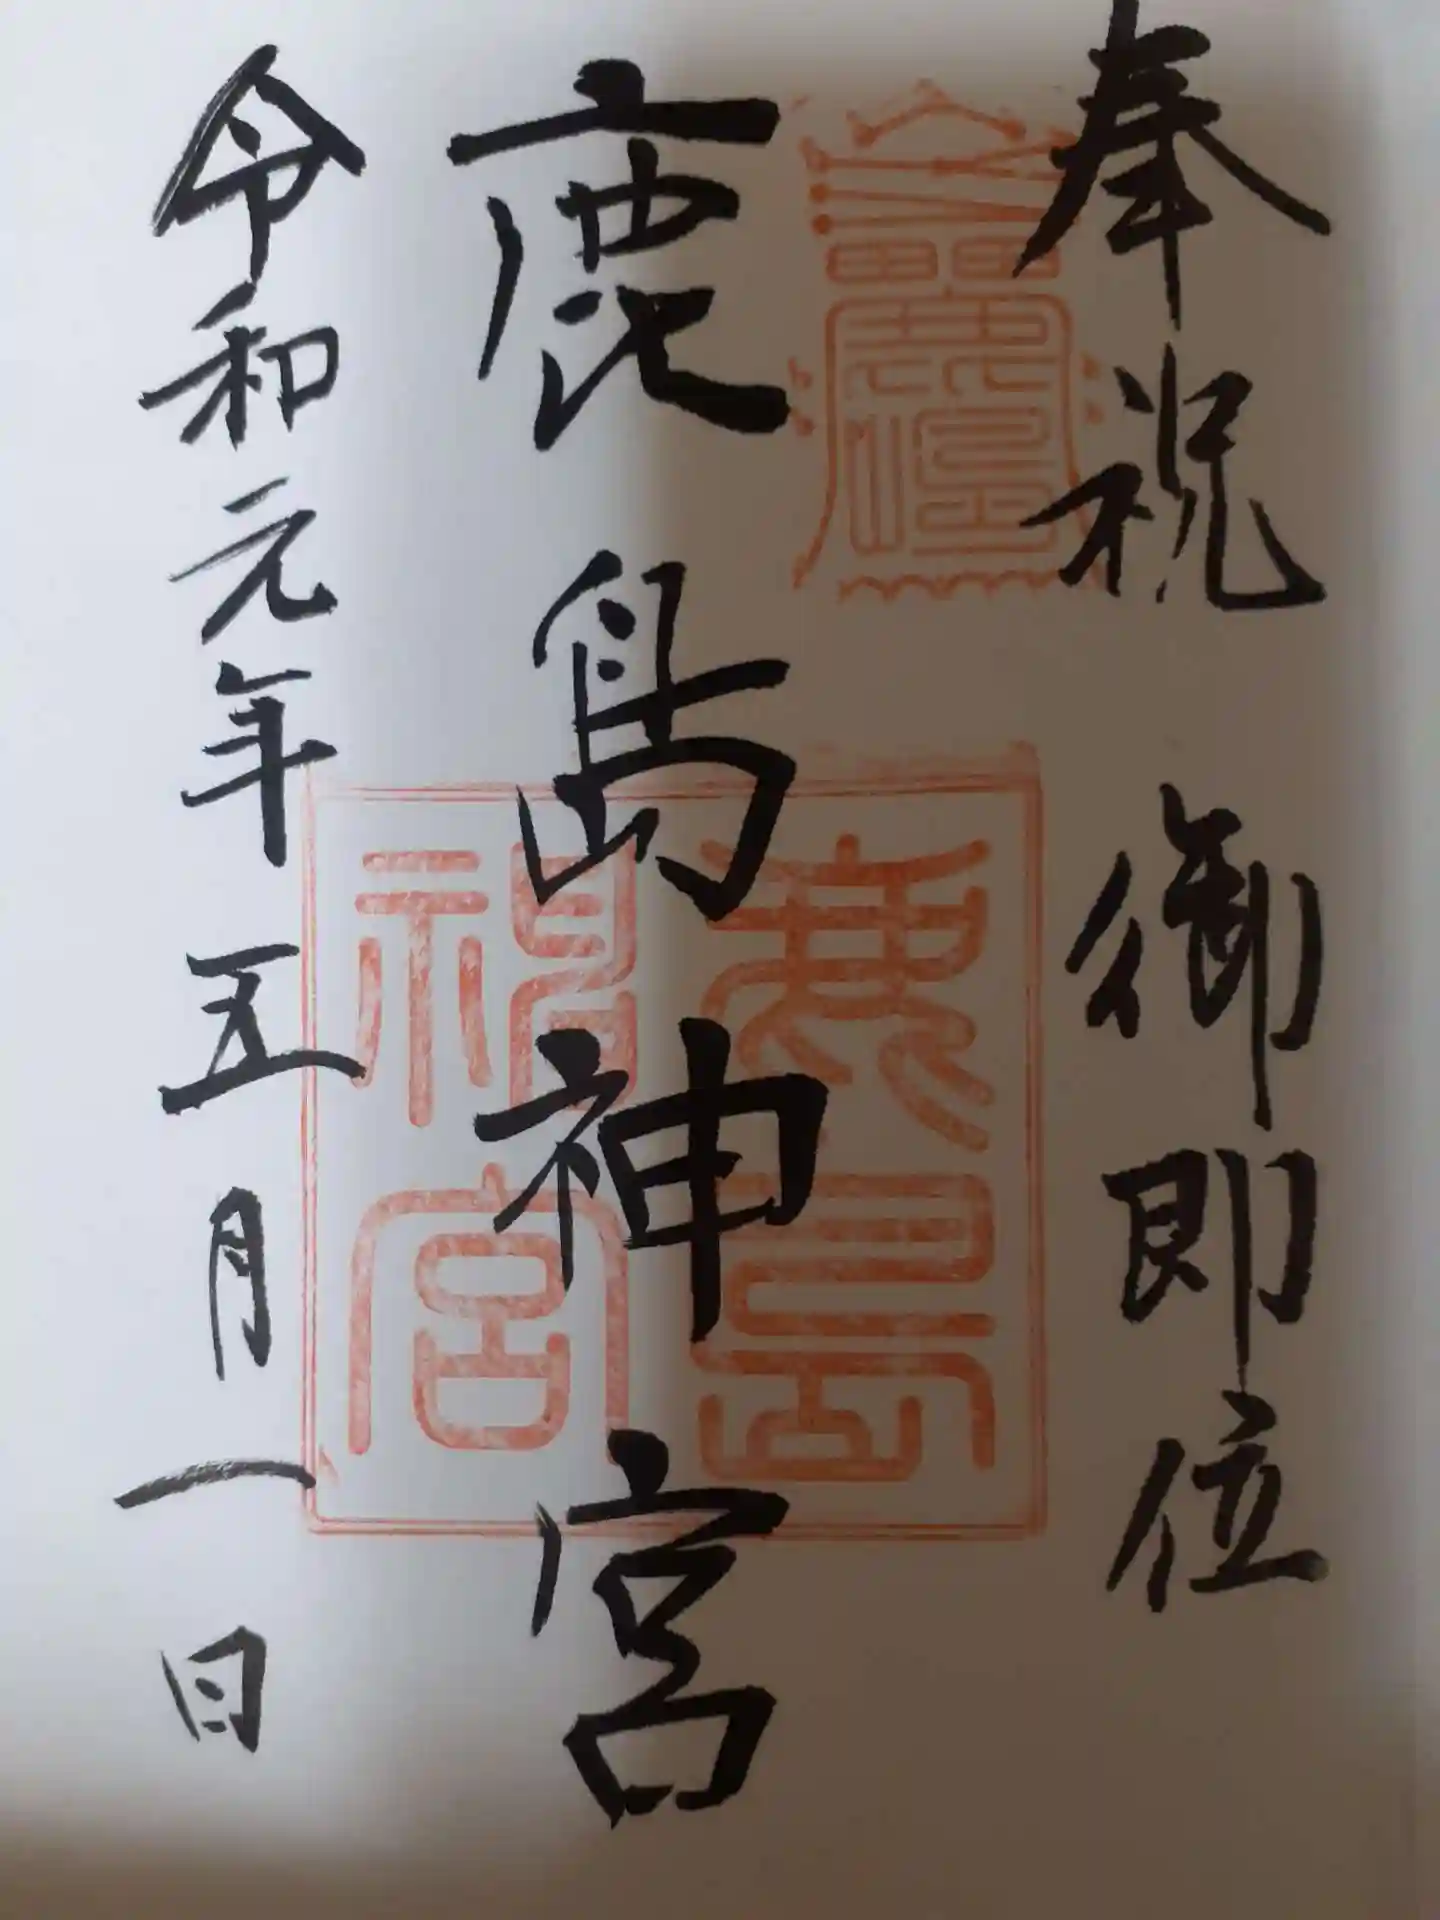 奉祝 御即位
鹿島神宮
令和元年五月一日
鹿島
神宮